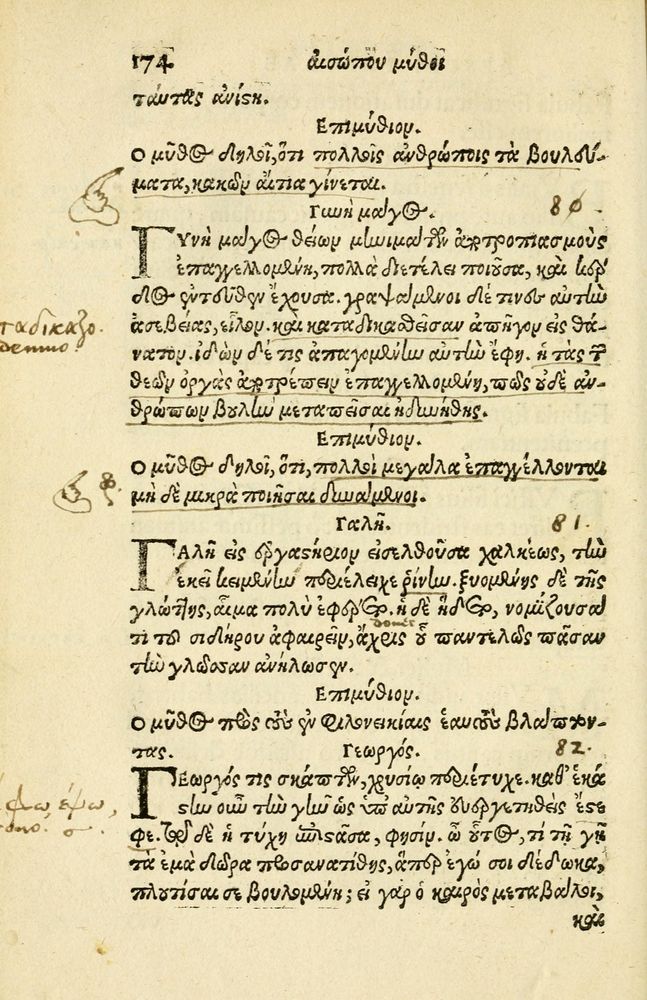 174 αισώπου μῦθοι
ταύτας ἀνίσκ.
Επιμύθιον.
Ο μῦθος δηλοῖ, ὅτι πολλοῖς ἀνθρώποις τὰ βουλεύ-
ματα, κακῶν αἴτια γίνεται.
Γυνὴ μάγος. 80.
ΓΥνὴ μάγος θείων μηνιμάτων ἀποτροπιασμοὺς
ἐπαγγελλομένη, πολλὰ διετέλει ποιοῦσα, καὶ κέρ
δος ἐντεῦθεν ἔχουσα. γραψάμενοι δέ τινες αὐτὴν
ταδικαζο.
ἀσεβείας, εἷλον. καὶ καταδικασθεῖσαν ἀπῆγον εἰς θά-
νατον. ἰδὼν δέ τις ἀπαγομένην αὐτὴν ἔφη. ἡ τὰς τῶν
θεῶν ὀργὰς ἀποτρέπειν ἐπαγγελλομένη, πῶς οὐδὲ ἀν-
θρώπων βουλὴν μεταπεῖσαι ἠδυνήθης.
Επιμύθιον.
Ο μῦθος δηλοῖ, ὅτι, πολλοὶ μεγάλα ἐπαγγέλλονται
μὴ δὲ μικρὰ ποιῆσαι δυνάμενοι.
Γαλῆ. 81.
ΓΑλῆ εἰς ἐργαστήριον εἰσελθοῦσα χαλκέως, τὴν
ἐκεῖ κειμένην περιέλειχε ῥίνην. ξυομένης δὲ τῆς
γλώττης, αἷμα πολὺ ἐφέρετο. ἡ δὲ ἥδετο, νομίζουσά
donec
τι τοῦ σιδήρου ἀφαιρεῖν, ἄχρις οὗ παντελῶς πᾶσαν
τὴν γλῶσσαν ἀνήλωσεν.
Επιμύθιον.
Ο μῦθος πρὸς τοὺς ἐν φιλονεικίαις ἑαυτοὺς βλάπτον-
τας. Γεωργός. 82.
ΓΕωργός τις σκάπτων, χρυσίῳ περιέτυχε. καθ' ἑκά
στην οὖν τὴν γῆν ὡς ὑπ' αὐτῆς εὐεργετηθεὶς ἔστε
φε. τῷ δὲ ἡ τύχη ἐπιστᾶσα, φησίν. ὦ οὗτος, τί τῇ γῇ
τὰ ἐμὰ δῶρα προσανατίθης, ἅπερ ἐγώ σοι δέδωκα,
πλουτίσαι σε βουλομένη; εἰ γὰρ ὁ καιρὸς μεταβάλοι,
καὶ